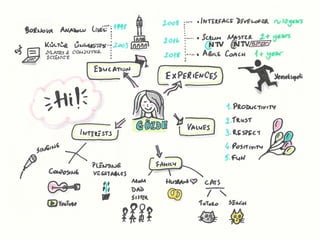 Bornova Anadolu Lisesi
1998
Kültür University
2003
Maths & Computer
Science
Education
2008
• Interface Developer ~12 years
2016
• Scrum Master 2+ years
NTV
NTV SPOR
2018
• Agile Coach 1+ year
Experiences
Yemeksepeti
Hi!
Gözde
Interests
Singing
Composing
YouTube
Planting
Vegetables
Values
1. Productivity
2. Trust
3. Respect
4. Positivity
5. Fun
Family
Mom
Dad
Sister
Husband
Cats